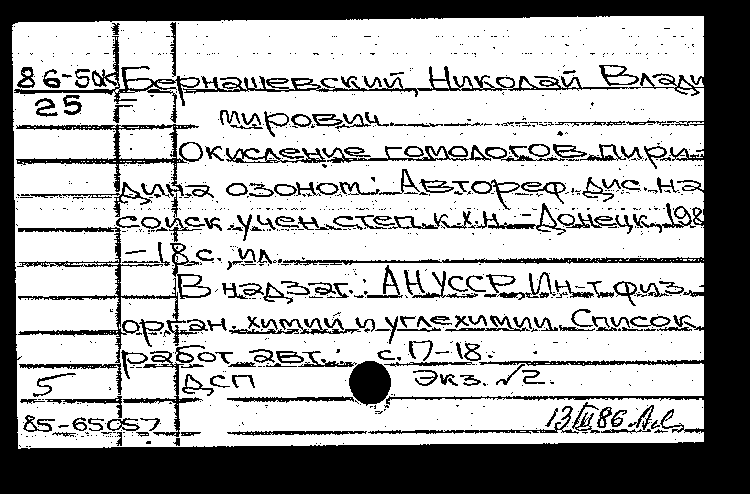 86-5ок Бернашевский, Николай Влади-
25 мирович
Окисление гомологов пири-
дина озоном: Автореф. дис. на
соиск. учен. степ. к.х.н. - Донецк, 198
- 18 с., ил.
В надзаг.: АН УССР, Ин-т физ.-
орган. химии и углехимии. Список
работ авт.: с. 17-18.
5 ДСП Экз. √2.
85-65057 13 III 86. А.С.